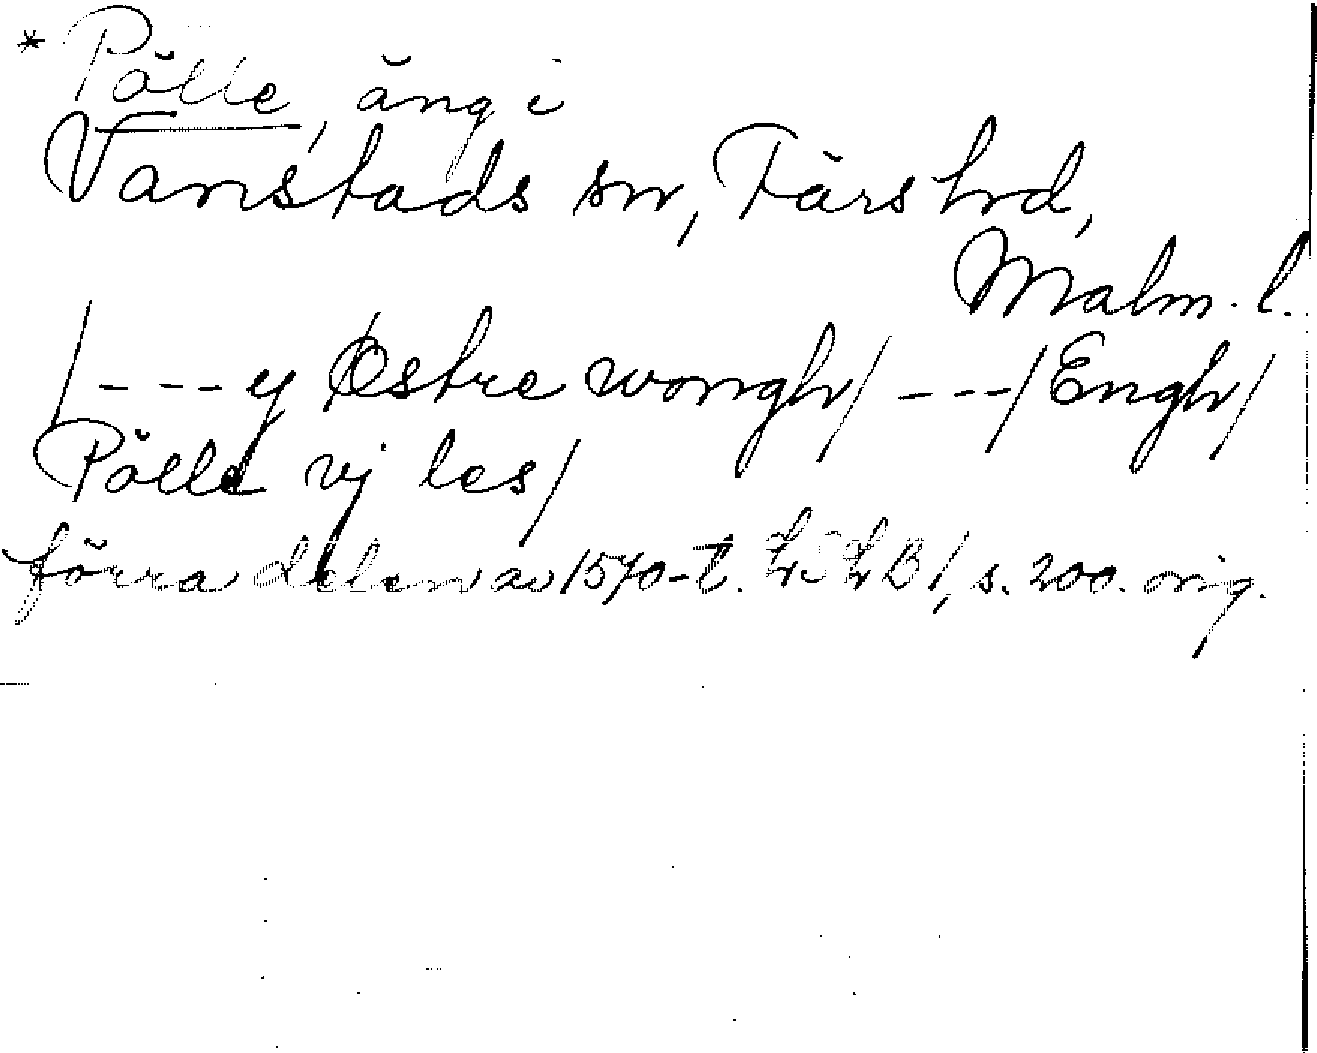 * Pölle, äng i
Vanstads sn, Färs hd,
Malm. l.
/---y Østre wongh/ ---/Engh/
Pölle vj les/
förra delen av 1570-t. LSLB 1, s. 200. orig.